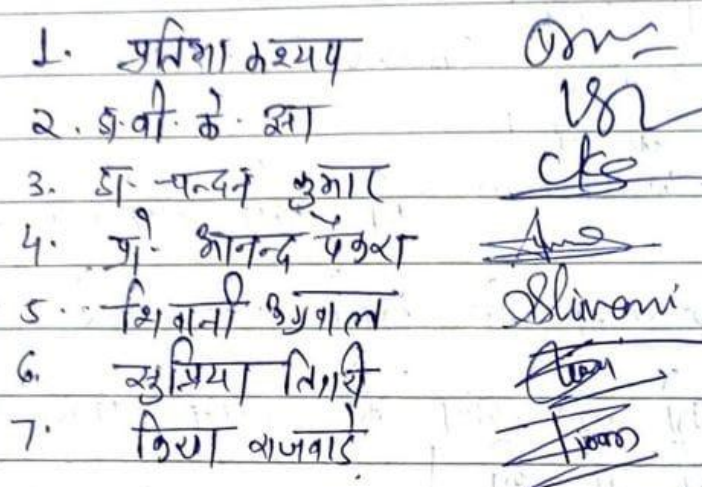 1. प्रतिभा कश्यप
2. डॉ. वी. के. झा
3. डा. चन्दन कुमार
4. प्रो. आनन्द पैकरा
5. शिवानी अग्रवाल Shivani
6. सुप्रिया तिवारी
7. राजवाडे